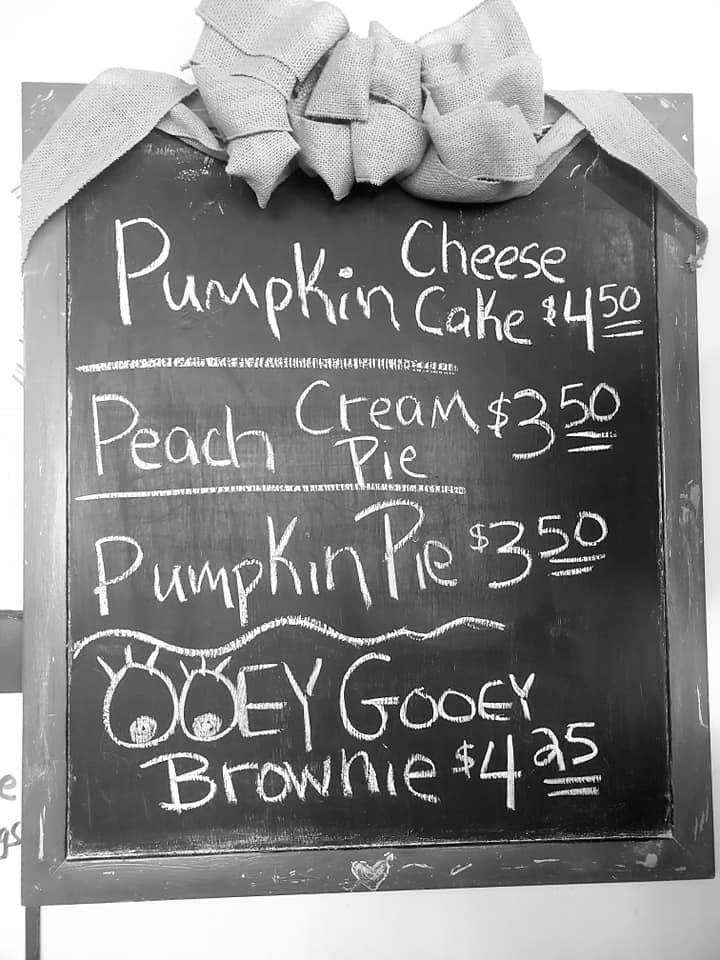 Pumpkin Cheese
Cake $4.50
Peach Cream $3.50
Pie
Pumpkin Pie $3.50
OOEY GOOEY
Brownie $4.25
e
gs